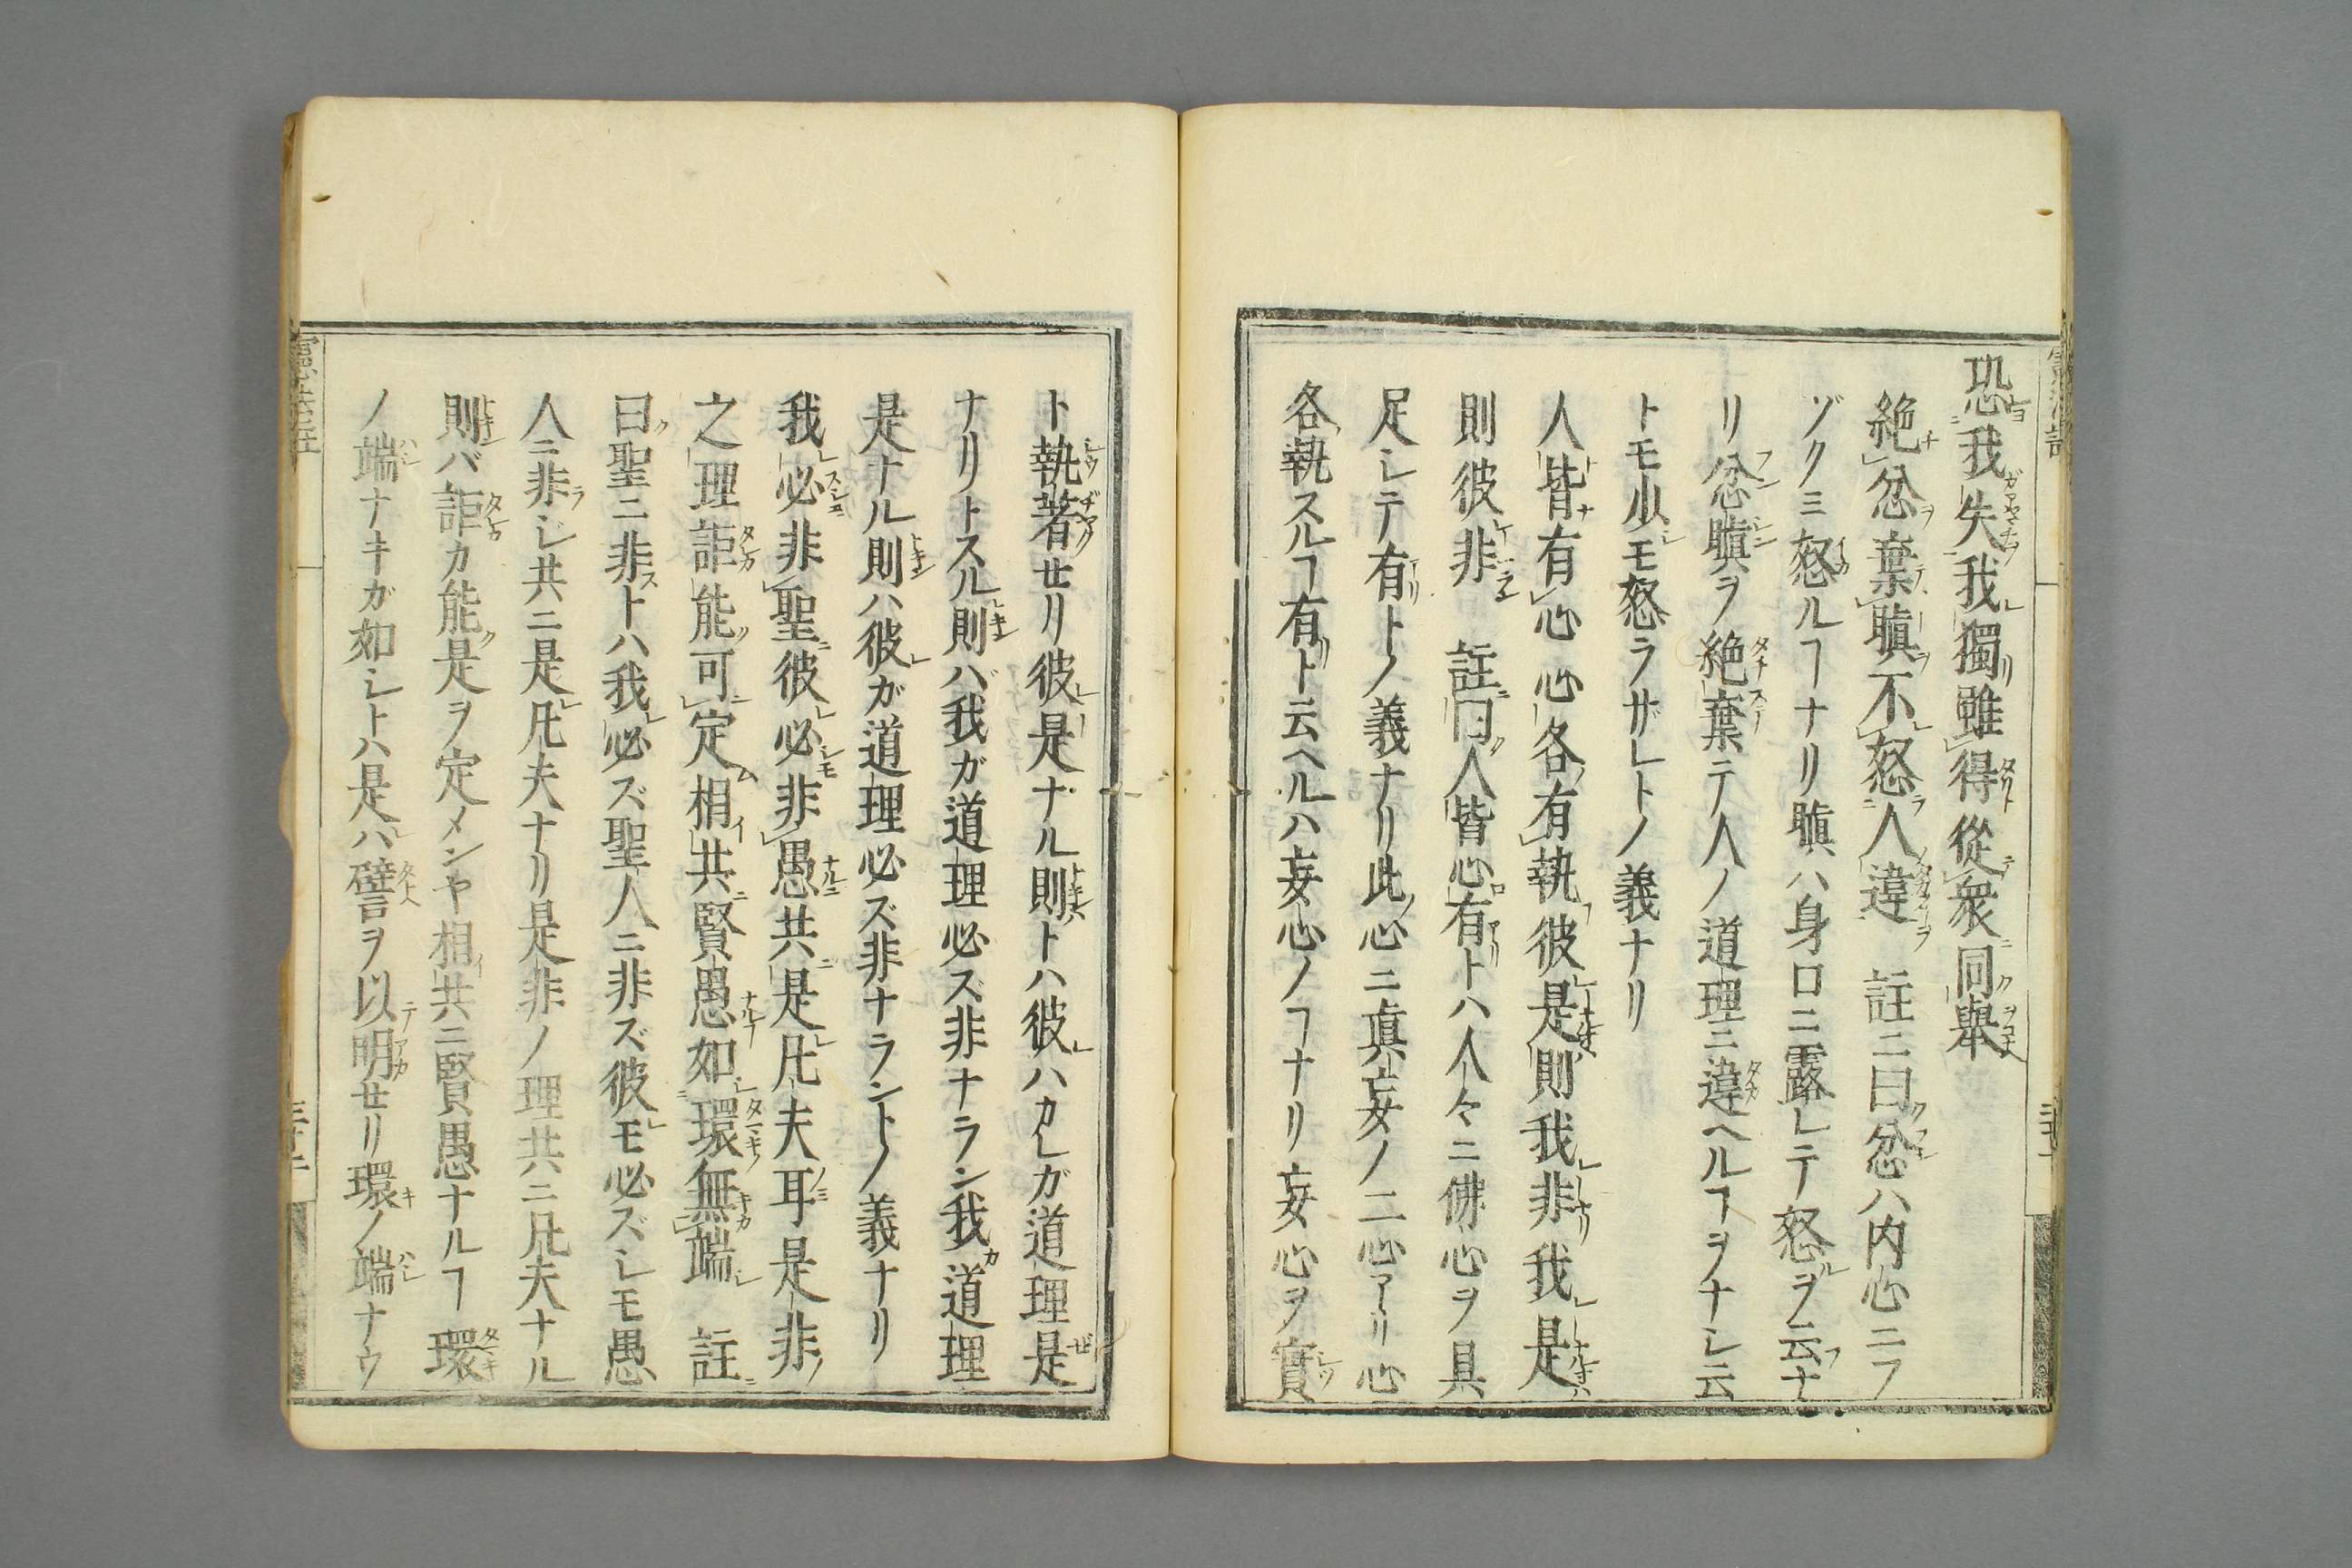 恐我失我獨雖得從衆同舉
絶忿棄瞋不怒人違 註ニ曰忿ハ内心ニフ
ヅクミ怒ルヿナリ瞋ハ身口ニ露レテ怒ヲ云ナ
リ忿瞋ヲ絶棄テ人ノ道理ニ違ヘルヿヲナシ云
トモ少モ怒ラザレトノ義ナリ
人皆有心心各有執彼是則我非我是
則彼非 註曰人皆心有トハ人々ニ佛心ヲ具
足シテ有トノ義ナリ此心ニ眞妄ノ二心アリ心
各執スルヿ有ト云ヘルハ妄心ノヿナリ妄心ヲ實
ト執著セリ彼是ナル則トハ彼ハカレガ道理是
ナリトスル則ハ我ガ道理必ズ非ナラン我道理
是ナル則ハ彼ガ道理必ズ非ナラントノ義ナリ
我必非聖彼必非愚共是凡夫耳是非
之理詎能可定相共賢愚如環無端 註
曰聖ニ非トハ我必ズ聖人ニ非ズ彼モ必ズシモ愚
人ニ非ジ共ニ是凡夫ナリ是非ノ理共ニ凡夫ナル
則バ詎カ能是ヲ定メンヤ相共ニ賢愚ナルヿ環
ノ端ナキガ如シトハ是ハ譬ヲ以明セリ環ノ端ナウ